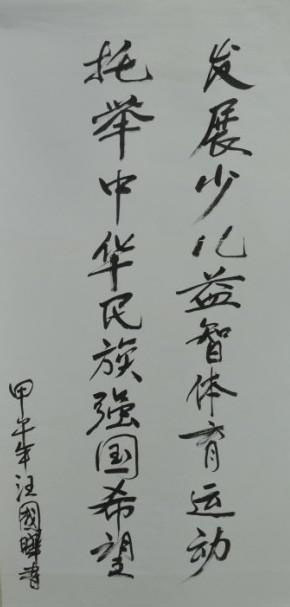 发展少儿益智体育运动
托举中华民族强国希望
甲午年汪國曄書